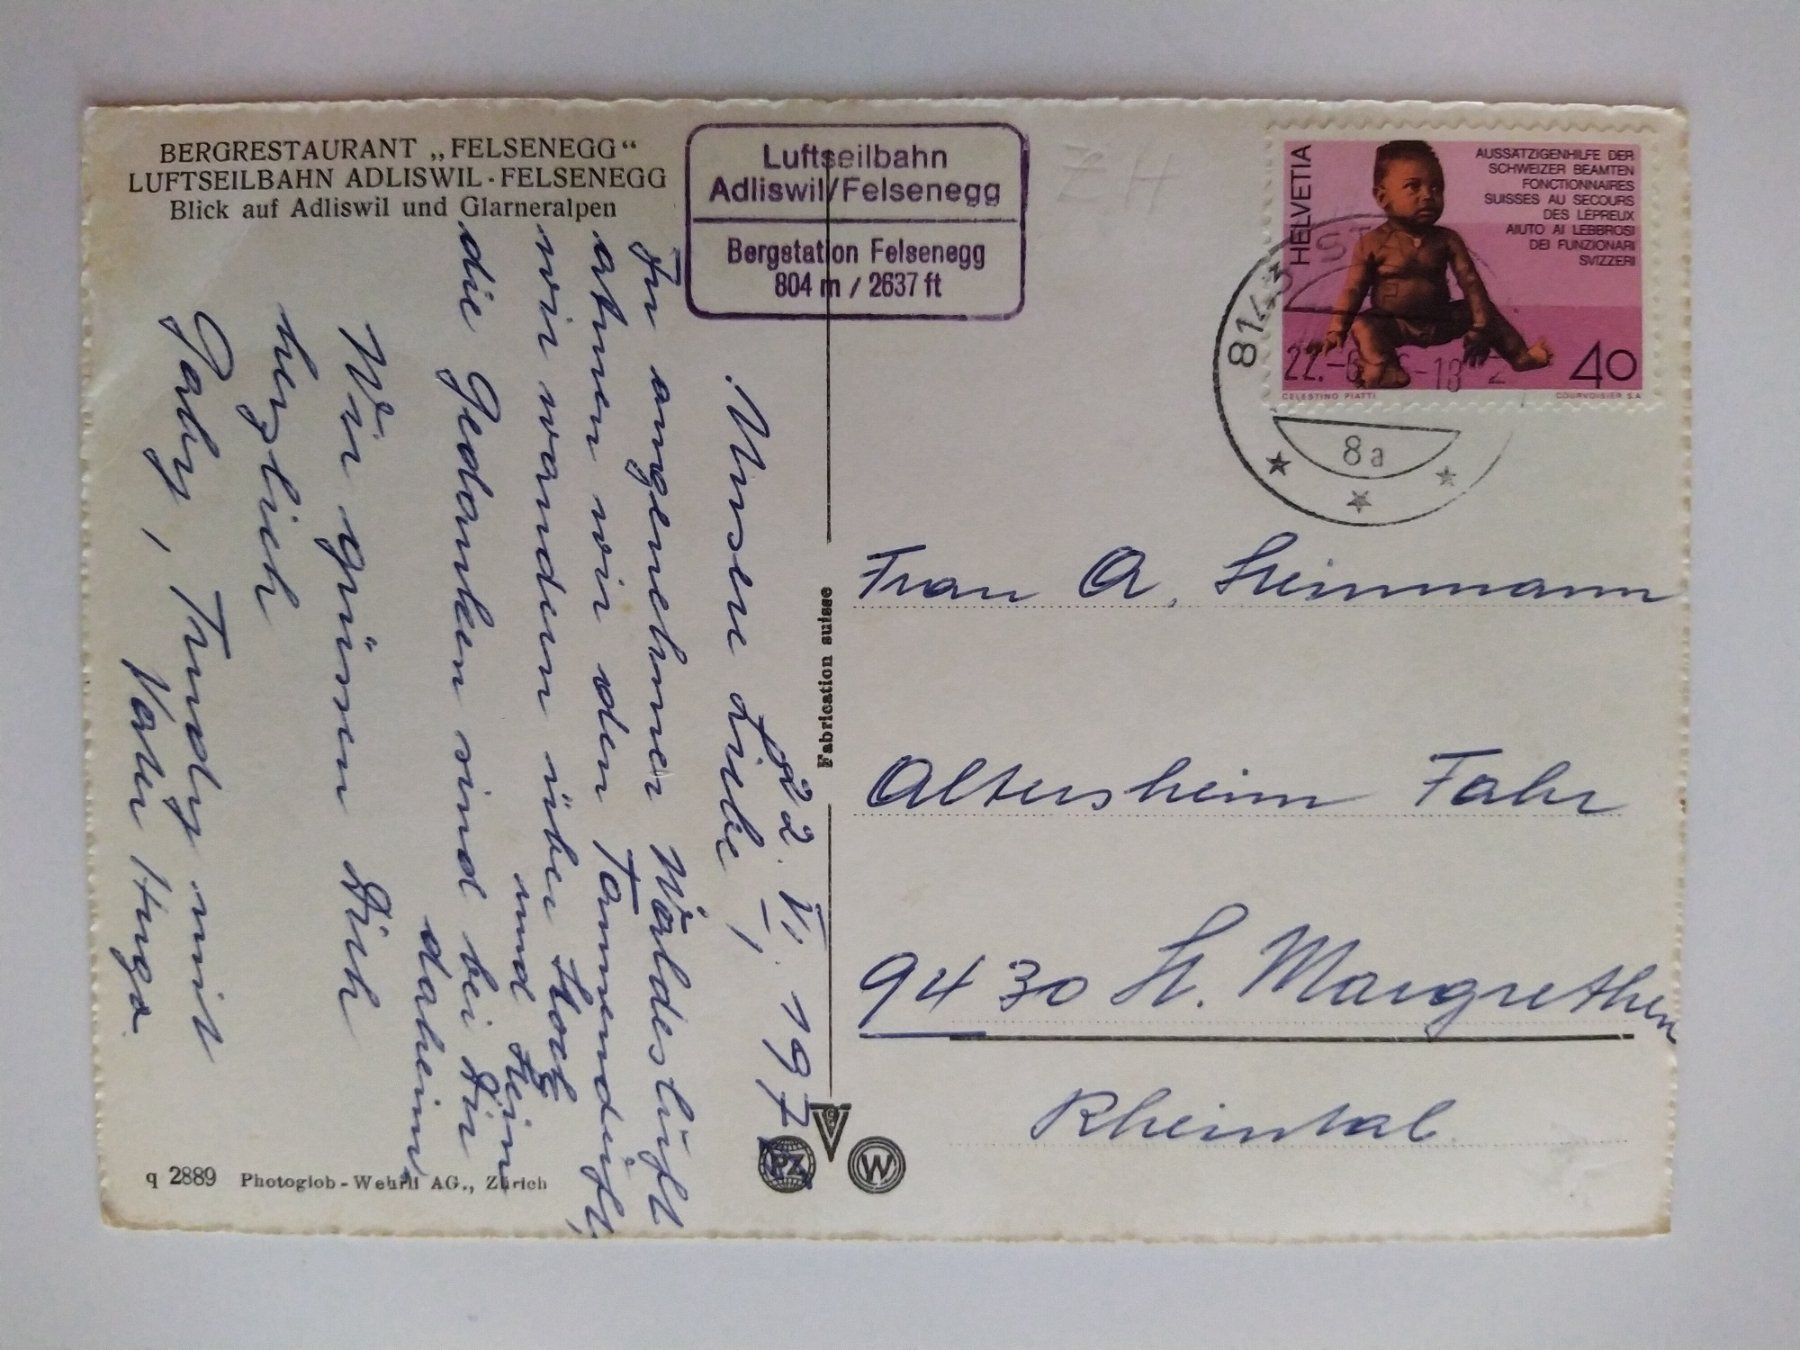 BERGRESTAURANT „FELSENEGG“
LUFTSEILBAHN ADLISWIL - FELSENEGG
Blick auf Adliswil und Glarneralpen
Luftseilbahn
Adliswil/Felsenegg
Bergstation Felsenegg
804 m / 2637 ft
ZH
HELVETIA
AUSSÄTZIGENHILFE DER
SCHWEIZER BEAMTEN
FONCTIONNAIRES
SUISSES AU SECOURS
DES LEPREUX
AIUTO AI LEBBROSI
DEI FUNZIONARI
SVIZZERI
40
CELESTINO PIATTI
COURVOISIER S.A
8143 ST
22.-6. -18
8a
22. VI. 197
Unsere Liebe,
In angenehmer Waldesluft
atmen wir den Tannenduft,
wir wandern über Stock
und Stein
die Gedanken sind bei Dir
daheim,
Wir grüssen Dich
herzlich
Gaby, Trudy mit
Vater Hugo.
Fabrication suisse
Frau A. Steinmann
Altersheim Fahr
9430 St. Margrethen
Rheintal
q 2889 Photoglob-Wehrli AG., Zürich
PZ
W